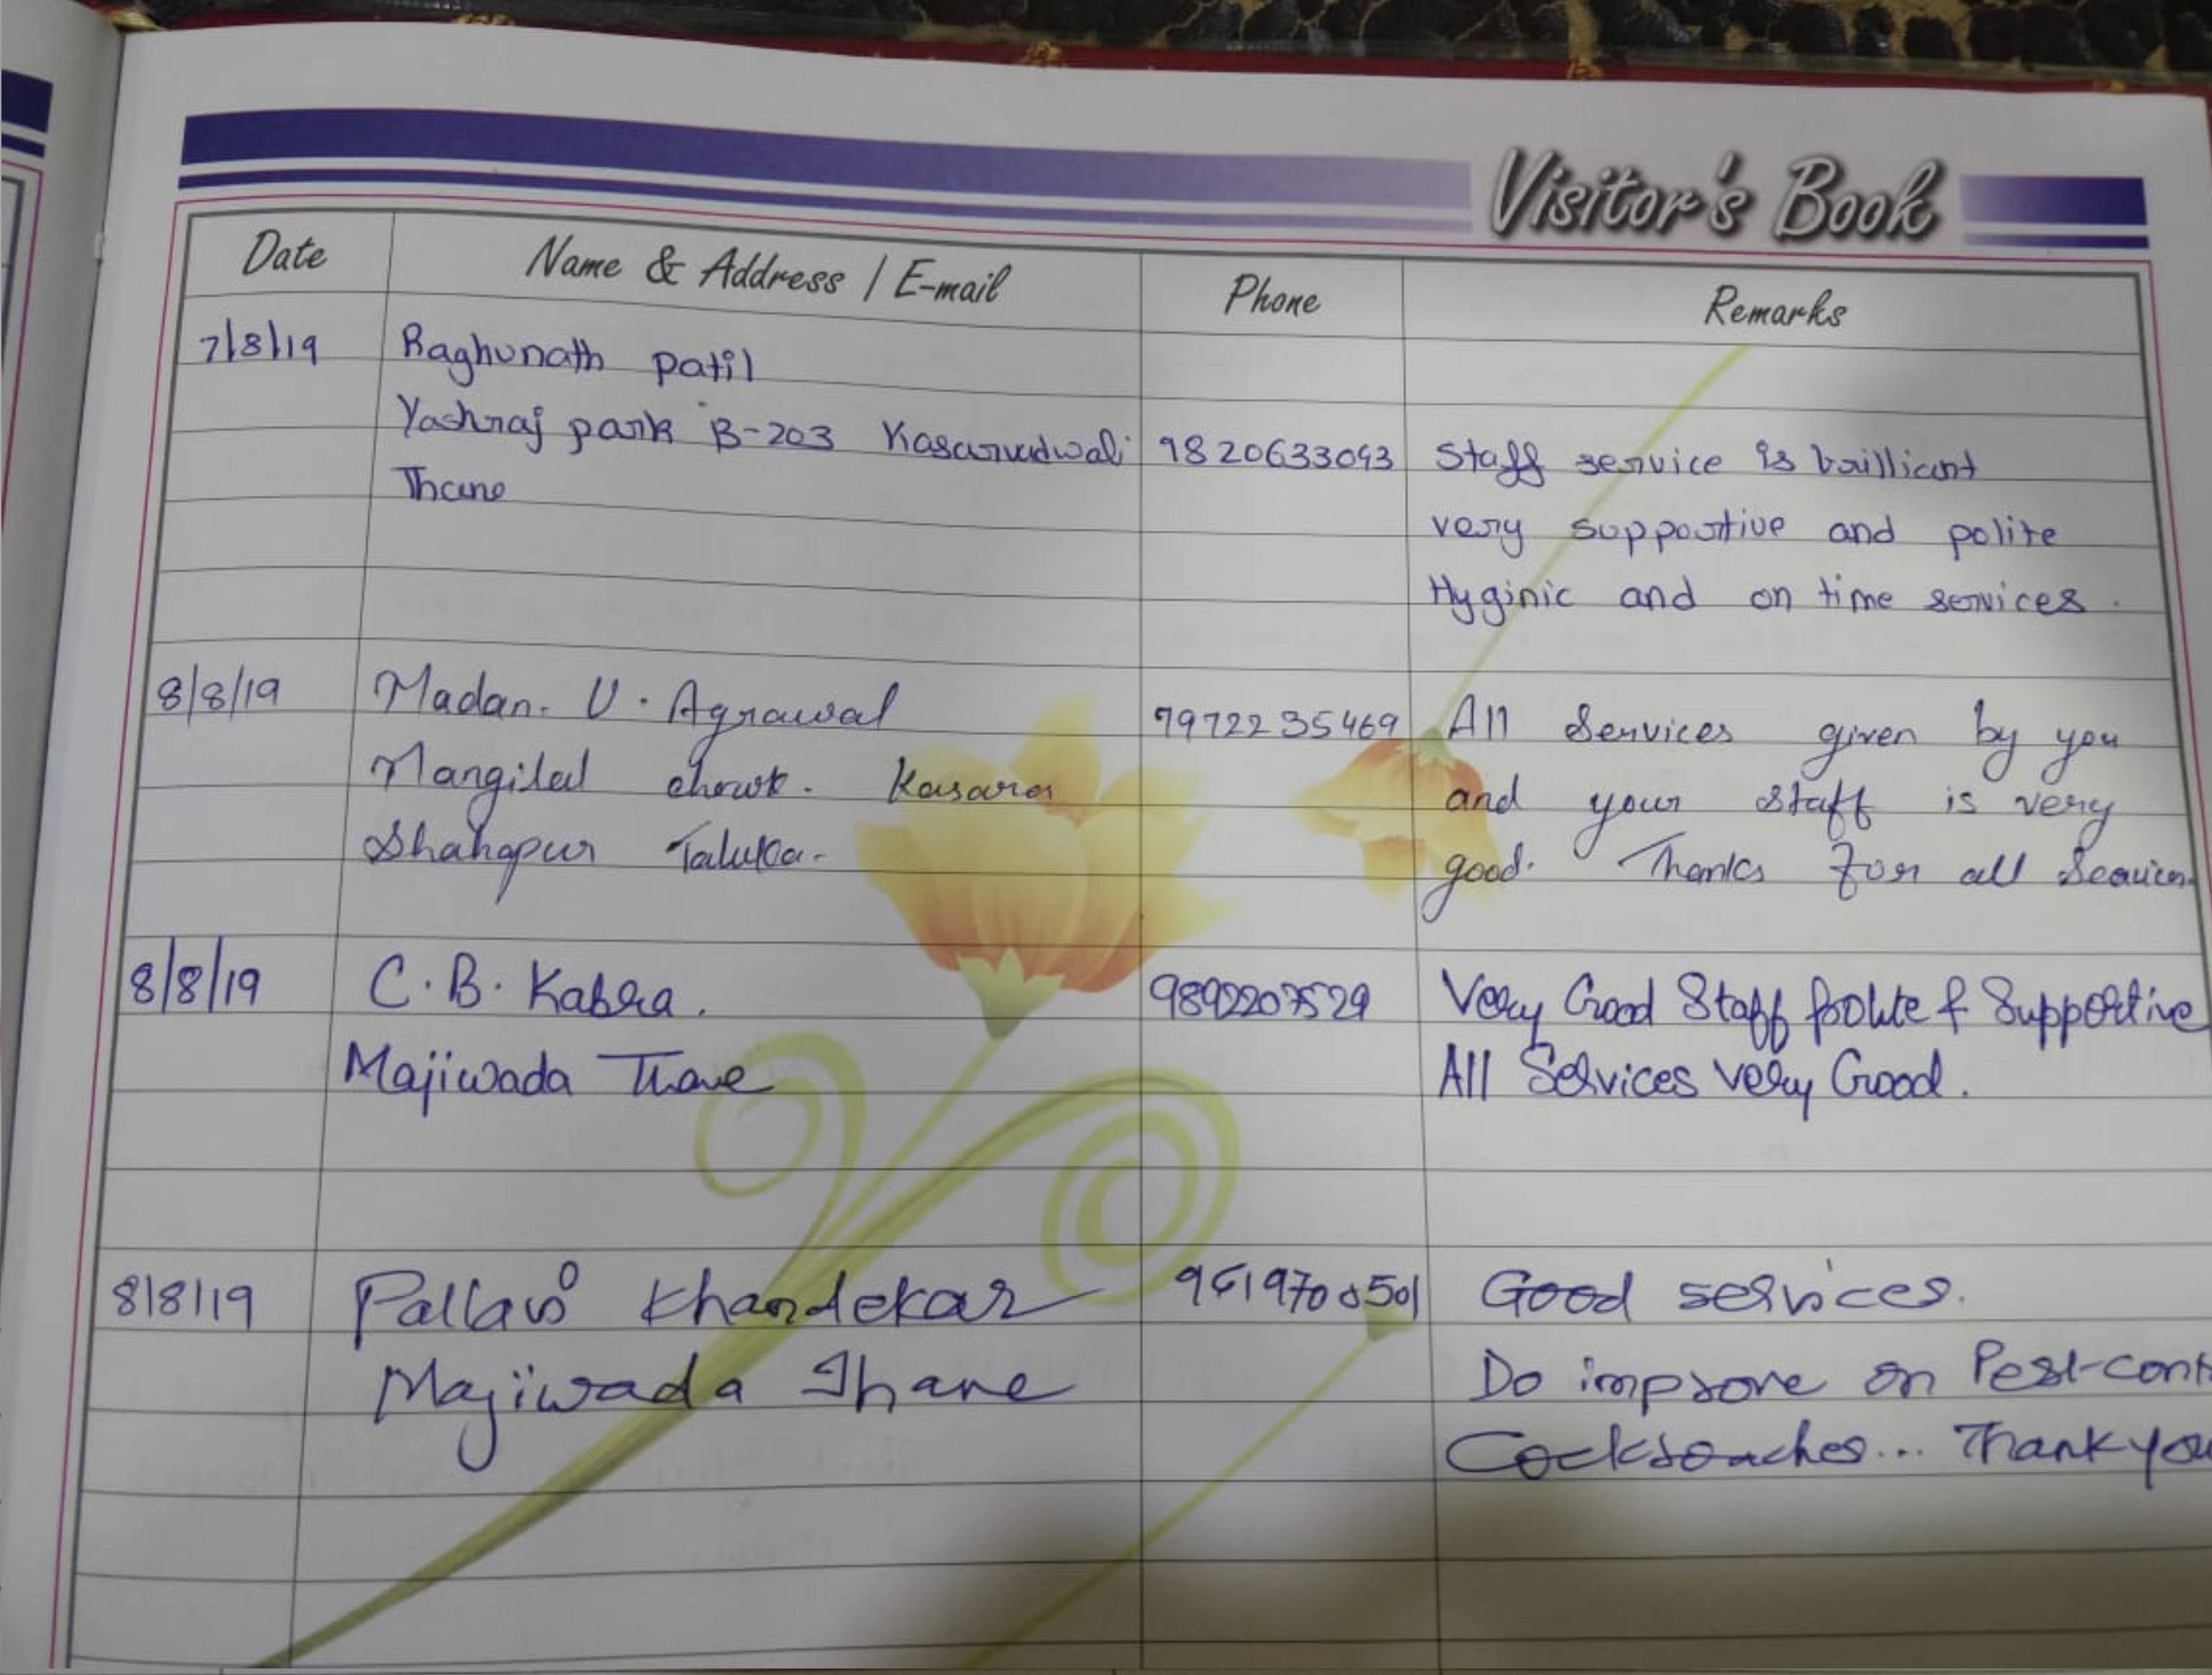 Visitor's Book
Date Name & Address / E-mail Phone Remarks
7/8/19 Raghunath patil
Yashraj park B-203 Kasarvadwali 9820633093 Staff service is brilliant
Thane
very supportive and polite
Hyginic and on time services.
8/8/19 Madan. U. Agrawal 7972235469 All Services given by you
Mangilal chowk. Kasara and your staff is very
Shahapur Taluka. good. Thanks for all
8/8/19 C.B. Kabra. 9892207529 Very Good Staff polite & Supportive
Majiwada Thane All Services very Good.
8/8/19 Pallavi Khandekar Good services.
Majiwada Thane Do improve on Pest-cont
Cockroaches... Thank you